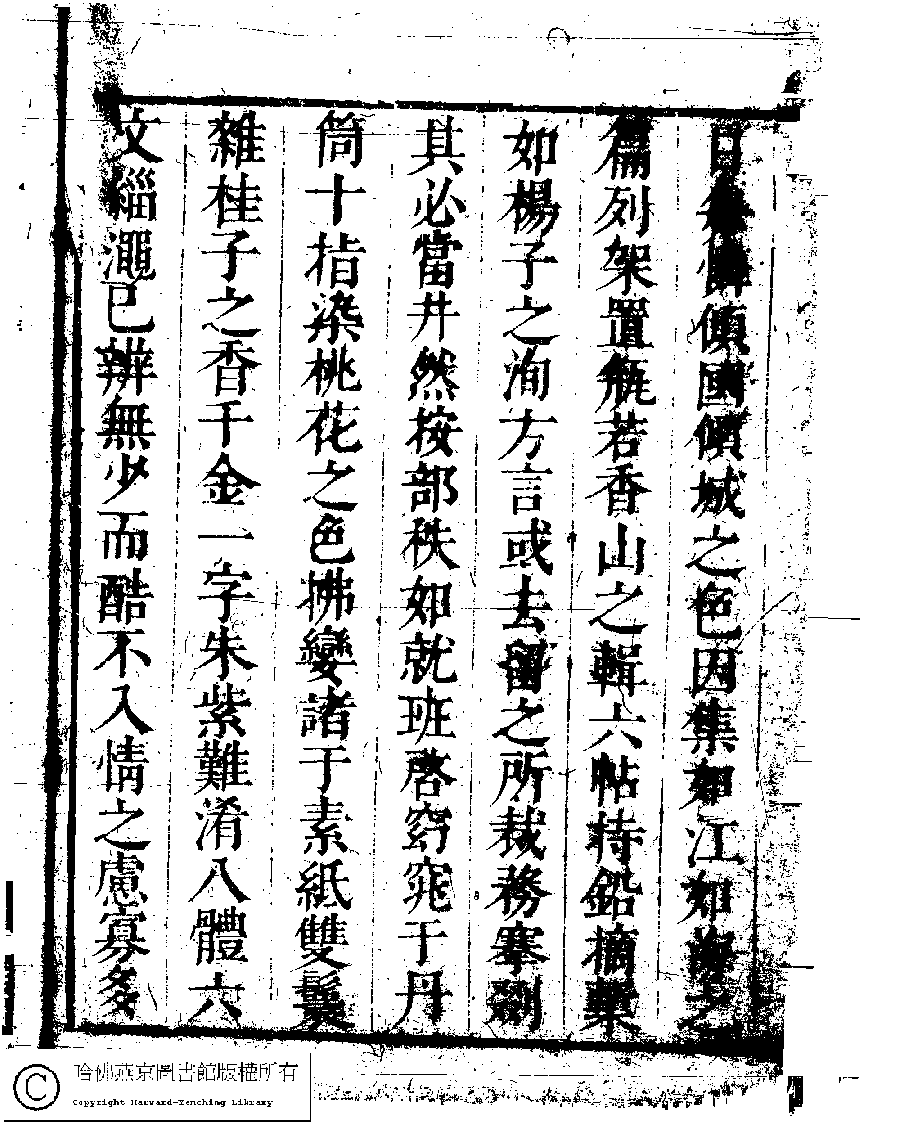 自無憐傾國傾城之色因集如江如海之
篇列架置甁若香山之輯六帖持鉛摘槧
如楊子之洵方言或去留之所裁務搴劉
其必當井然按部秩如就班啓窈窕于丹
筒十指染桃花之色拂孌諸于素紙雙鬟
雜桂子之香千金一字朱紫難淆八體六
文緇澠已辨無少而酷不入情之慮寡多
哈佛燕京圖書館版權所有
Copyright Harvard-Yenching Library